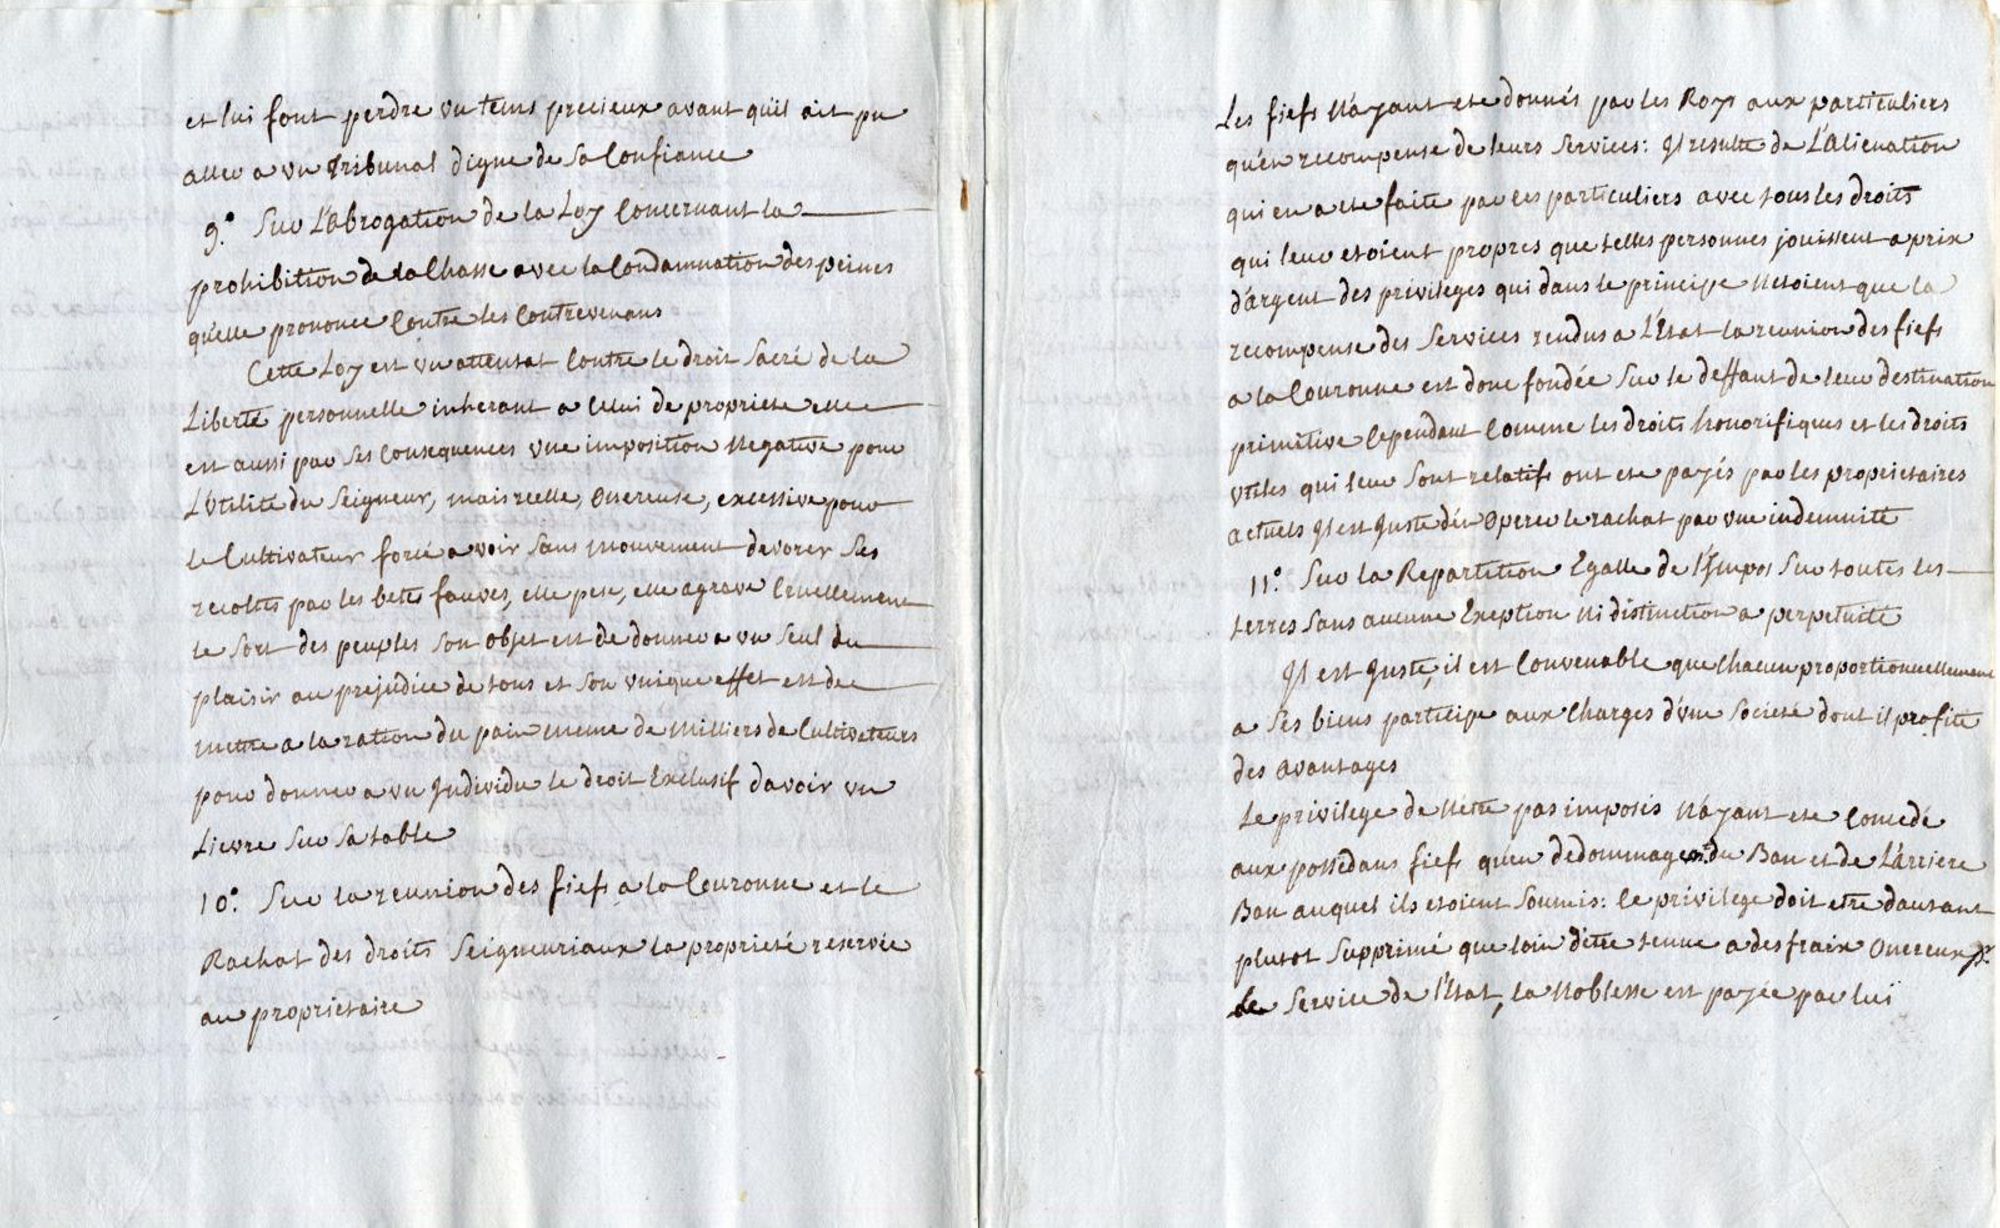 et lui font perdre un tems precieux avant qu'il ait pu
aller a un Tribunal digne de sa Confiance
9.° Sur L'abrogation de la Loy Concernant la
prohibition de la Chasse avec la Condamnation des peines
qu'elle prononce Contre les Contrevenans
Cette Loy est un attentat Contre le droit Sacré de la
Liberté personnelle inherant a Celui de propriete elle
est aussi par ses Consequences une imposition Negative pour
L'utilité du Seigneur, mais reelle, Onereuse, excessive pour
le Cultivateur forcé a voir sans mouvement devorer ses
recoltes par les betes fauves, elle pese, elle agrave Cruellement
le sort des peuples son objet est de donner a un seul du
plaisir au prejudice de tous et son unique effet est de
mettre a la ration du pain meme de Milliers de Cultivateurs
pour donner a un Individu le droit Exclusif d'avoir un
Lievre sur sa table
10.° Sur la reunion des fiefs a la Couronne et le
Rachat des droits Seigneuriaux la proprieté reservée
au proprietaire
Les fiefs N'ayant ete donnés par les Roys aux particuliers
qu'en recompense de leurs Services: Il resulte de L'alienation
qui en a ete faite par ces particuliers avec tous les droits
qui leur etoient propres que telles personnes jouissent a prix
d'argent des privileges qui dans le principe N'etoient que la
recompense des Services rendus a L'Etat la reunion des fiefs
a la Couronne est donc fondée sur le deffaut de leur destination
primitive Cependant Comme les droits honorifiques et les droits
utiles qui leur sont relatifs ont ete payés par les proprietaires
actuels Il est Juste d'en Operer le rachat par une indemnité
11.° Sur la Repartition Egalle de l'Impos Sur toutes les
terres sans aucune Exeption Ni distinction a perpetuité
Il est Juste, il est Convenable que Chacun proportionnellement
a ses biens participe aux Charges d'une Societé dont il profite
des avantages
Le privilege de N'être pas imposés N'ayant ete Concedé
aux possedans fiefs qu'en dedommagemt. du Ban et de L'arriere
Ban auquel ils etoient Soumis: Ce privilege doit etre dautant
plutot Supprimé que loin d'etre tenue a des fraix Onereux pr.
le Service de l'Etat, la Noblesse est payée par lui